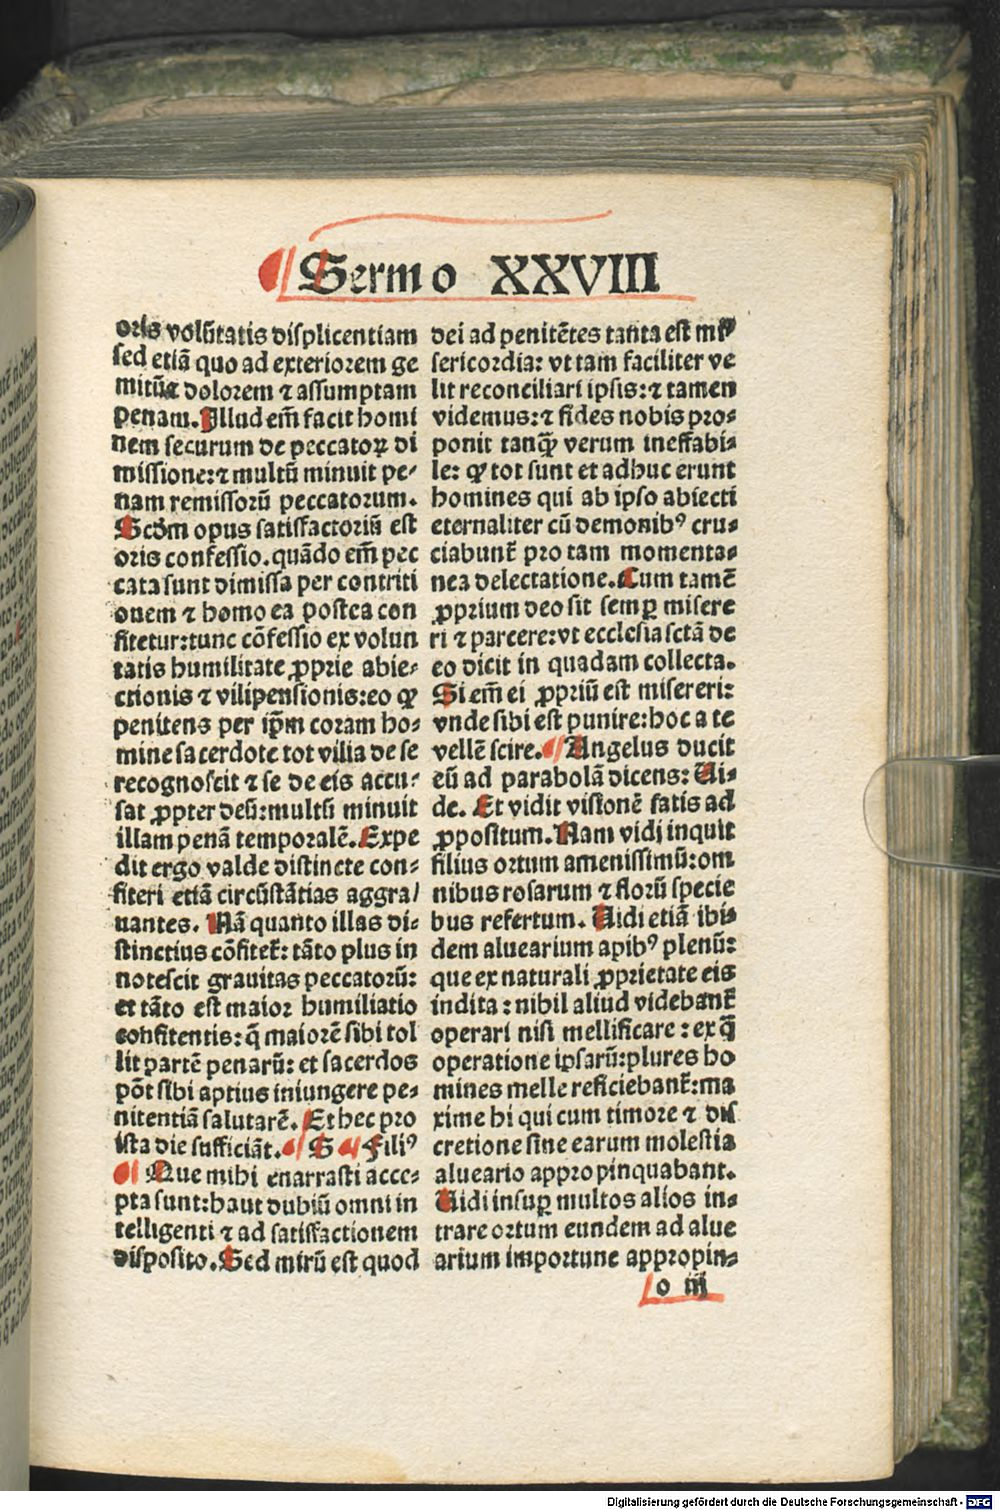 ¶ Sermo XXVIII
oris volūtatis diſplicentiam
ſed etiā quo ad exteriorem ge
mitū ⁊ dolorem ⁊ aſſumptam
penam. Illud em̄ facit homi
nem ſecurum de peccatoꝝ di
miſſione: ⁊ multū minuit pe-
nam remiſſorū peccatorum.
Scd̄m opus ſatiſfactoriū eſt
oris confeſſio. quādo em̄ pec
cata ſunt dimiſſa per contriti
onem ⁊ homo ea poſtea con
fitetur: tunc cōfeſſio ex volun
tatis humilitate ꝓprie abie-
ctionis ⁊ vilipenſionis: eo ꝙ
penitens per ip̄m coram ho-
mine ſacerdote tot vilia de ſe
recognoſcit ⁊ ſe de eis accu-
ſat ꝓpter deū: multū minuit
illam penā temporalē. Expe
dit ergo valde diſtincte con-
fiteri etiā circūſtātias aggra/
uantes. Nā quanto illas di-
ſtinctius cōfitet᷑: tāto plus in
noteſcit grauitas peccatorū:
et tāto eſt maior humiliatio
confitentis: q̄ maiorē ſibi tol
lit partē penarū: et ſacerdos
pōt ſibi aptius iniungere pe-
nitentiā ſalutarē. Et hec pro
iſta die ſufficiāt. ¶ S ¶ Filiꝰ
¶ Que mihi enarraſti acce-
pta ſunt: haut dubiū omni in
telligenti ⁊ ad ſatiſfactionem
diſpoſito. Sed mirū eſt quod
dei ad penitētes tanta eſt mi-
ſericordia: vt tam faciliter ve
lit reconciliari ipſis: ⁊ tamen
videmus: ⁊ fides nobis pro-
ponit tanq̄ verum ineffabi-
le: ꝙ tot ſunt et adhuc erunt
homines qui ab ipſo abiecti
eternaliter cū demonibꝰ cru-
ciabunt᷑ pro tam momenta-
nea delectatione. Cum tamē
ꝓprium deo ſit ſemꝑ miſere
ri ⁊ parcere: vt eccleſia ſctā de
eo dicit in quadam collecta.
Si em̄ ei ꝓpriū eſt miſereri:
vnde ſibi eſt punire: hoc a te
vellē ſcire. ¶ Angelus ducit
eū ad parabolā dicens: Ui-
de. Et vidit viſionē ſatis ad
ꝓpoſitum. Nam vidi inquit
filius ortum ameniſſimū: om
nibus roſarum ⁊ florū ſpecie
bus refertum. Uidi etiā ibi-
dem aluearium apibꝰ plenū:
que ex naturali ꝓprietate eis
indita: nihil aliud videbant᷑
operari niſi mellificare: ex q̄
operatione ipſarū: plures ho
mines melle reficiebant᷑: ma
xime hi qui cum timore ⁊ diſ
cretione ſine earum moleſtia
alueario appropinquabant.
Uidi inſuꝑ multos alios in-
trare ortum eundem ad alue
arium importune appropin-
o iij
Digitalisierung gefördert durch die Deutsche Forschungsgemeinschaft - DFG